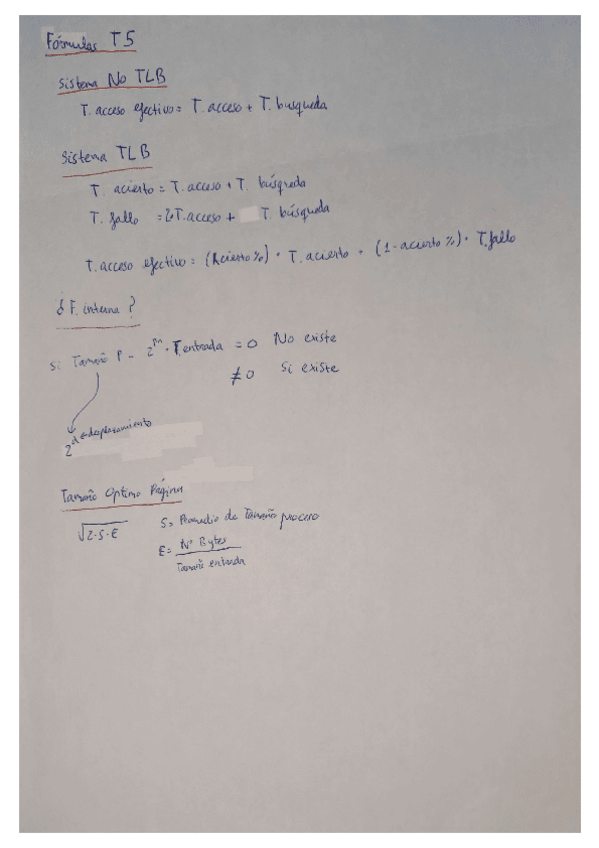 Fórmulas T5
Sistema No TLB
T. acceso efectivo = T. acceso + T. busqueda
Sistema TLB
T. acierto = T. acceso + T. búsqueda
T. fallo = 2T. acceso + T. búsqueda
T. acceso efectivo = (Acierto %) · T. acierto + (1 - acierto %) · T. fallo
¿F. interna?
Si Tamaño P - 2^m · T. entrada = 0 No existe
≠ 0 Si existe
2^d ← desplazamiento
Tamaño Optimo Página
√2·S·E
S = Promedio de Tamaño proceso
E = Nº Bytes
Tamaño entrada